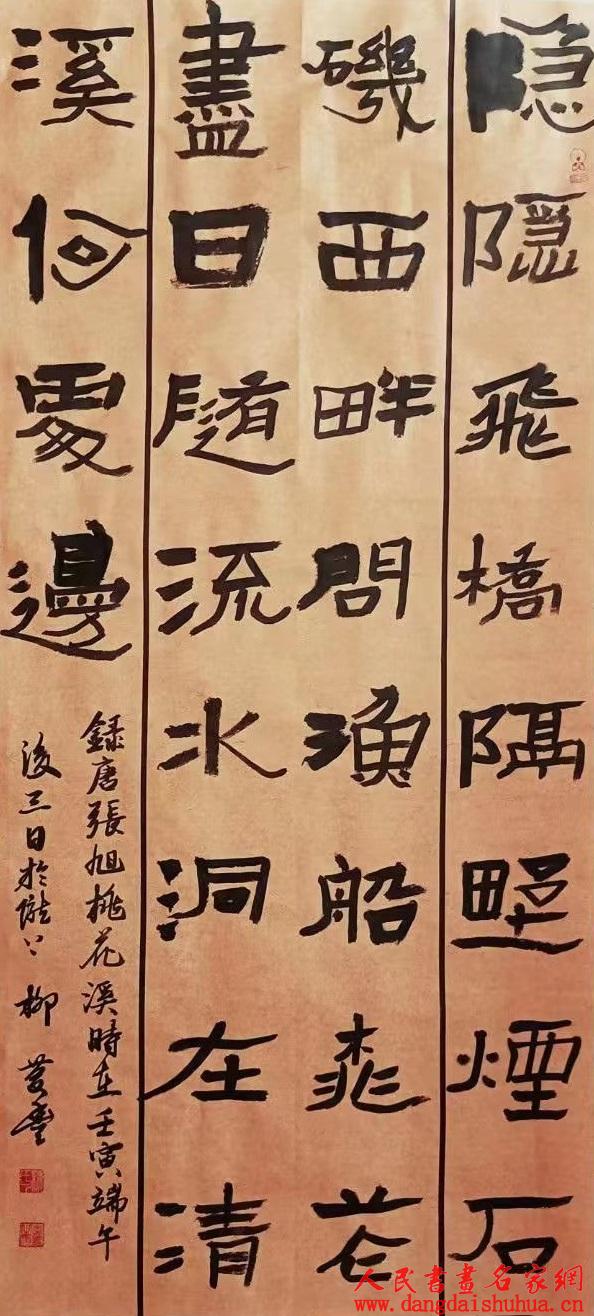 隐隐飛橋隔野煙石
磯西畔問漁船桃花
盡日隨流水洞在清
溪何處邊
錄唐張旭桃花溪時在壬寅端午
後三日於隴上柳
人民書畫名家網
www.dangdaishuhua.cn